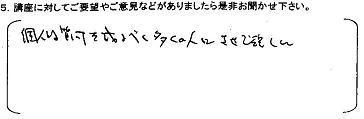 5. 講座に対してご要望やご意見などがありましたら是非お聞かせ下さい。
個人的質問を成るべく多くの人にさせて欲しい